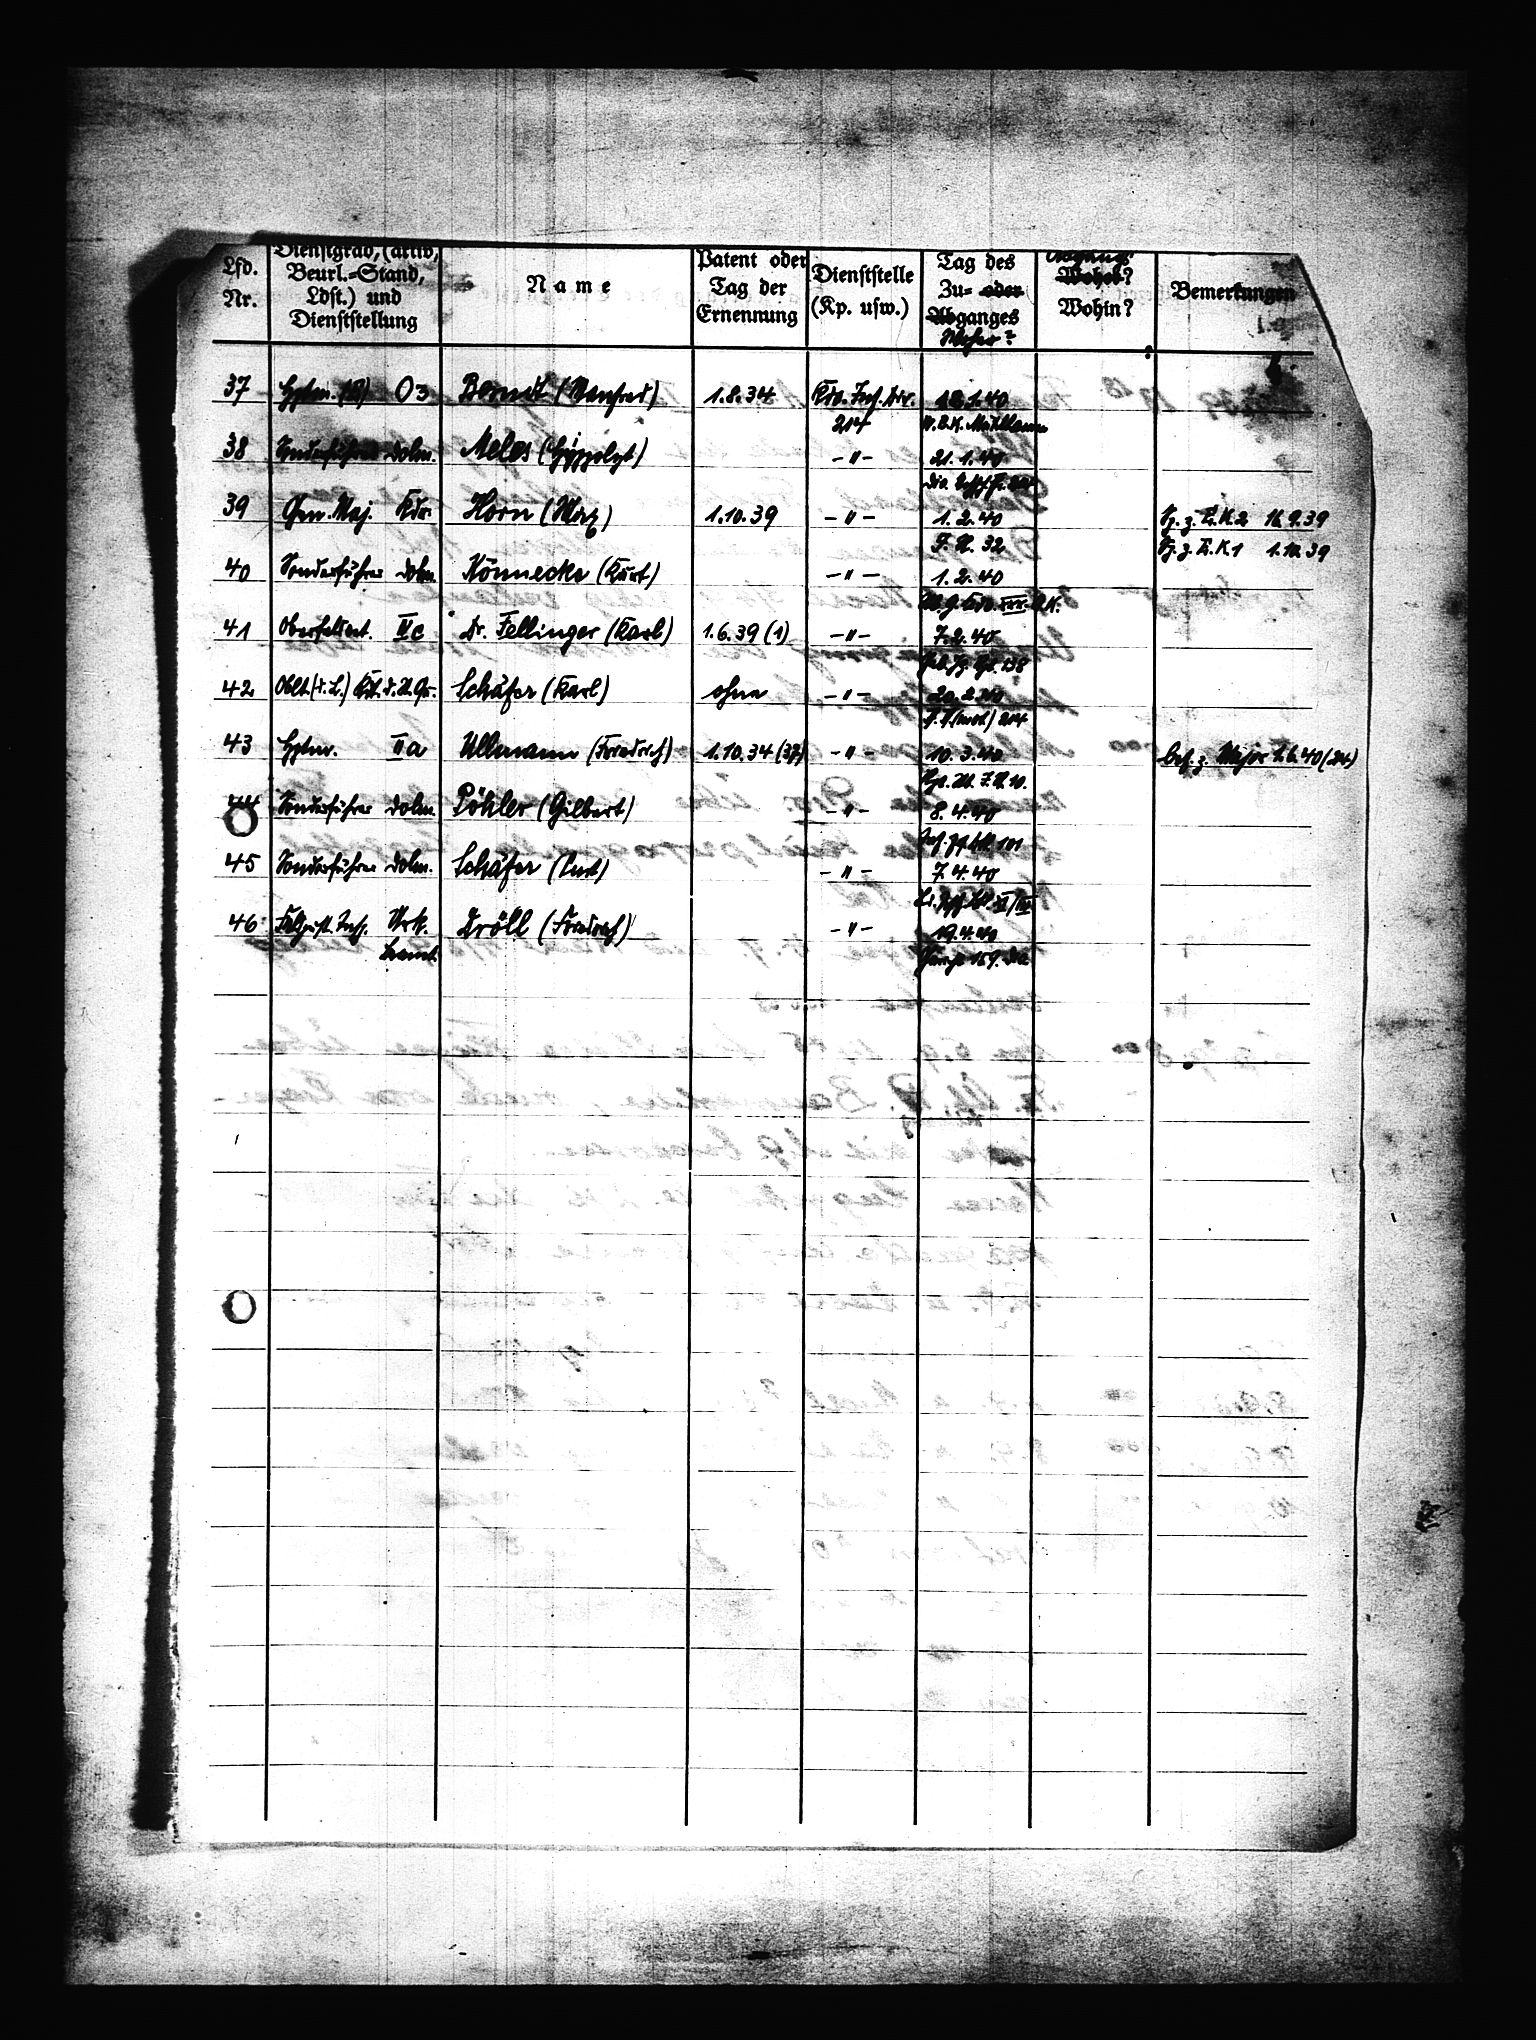 Lfd. Nr.
Dienstgrad, (aktiv, Beurl.=Stand, Ldst.) und Dienststellung
Name
Patent oder Tag der Ernennung
Dienststelle (Kp. usw.)
Tag des Zu= oder Abganges
Woher?
Abgang
Woher?
Wohin?
Bemerkungen
37 Hptm. (R) O3 Berndt (Manfred) 1.8.34 Kdo. Inf. Div. 18.1.40
214
38 Sonderführer Dolm. Meles (Hippolyt) -"- 21.1.40
39 Gen. Maj. Kdr. Horn (Max) 1.10.39 -"- 1.2.40 Sp. z. E.K.2 16.9.39
J.R. 32 Sp. z. E.K.1 1.10.39
40 Sonderführer Dolm. Könnecke (Kurt) -"- 1.2.40
41 Oberfeldvet. IVc Dr. Fellinger (Karl) 1.6.39 (1) -"- 7.2.40
Geb. Jg. Rgt. 138
42 Oblt. (d. L.) Kdt. d. St. Qu. Schäfer (Karl) ohne -"- 20.2.40
(mot) 214
43 Hptm. IIa Ullmann (Friedrich) 1.10.34 (37) -"- 10.3.40 bef. z. Major 1.6.40 (24)
44 Sonderführer Dolm. Pöhler (Gilbert) -"- 8.4.40
101
45 Sonderführer Dolm. Schäfer (Curt) -"- 7.4.40
46 Feldjust. Insp. Urk. Beamt. Dröll (Friedrich) -"- 19.4.40
169. Div.